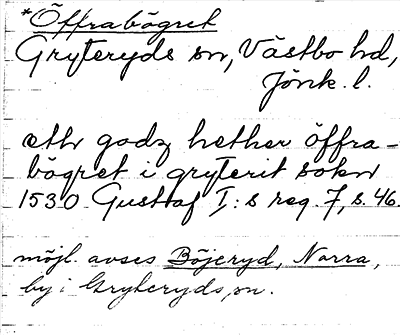 *Öffrabögret
Gryteryds sn, Västbo hd,
Jönk. l.
eth godz hether öffra-
bögret i gryterit sokn
1530 Gusttaf I: s reg. 7, s. 46.
möjl. avses Böjeryd, Norra,
by i Gryteryds sn.